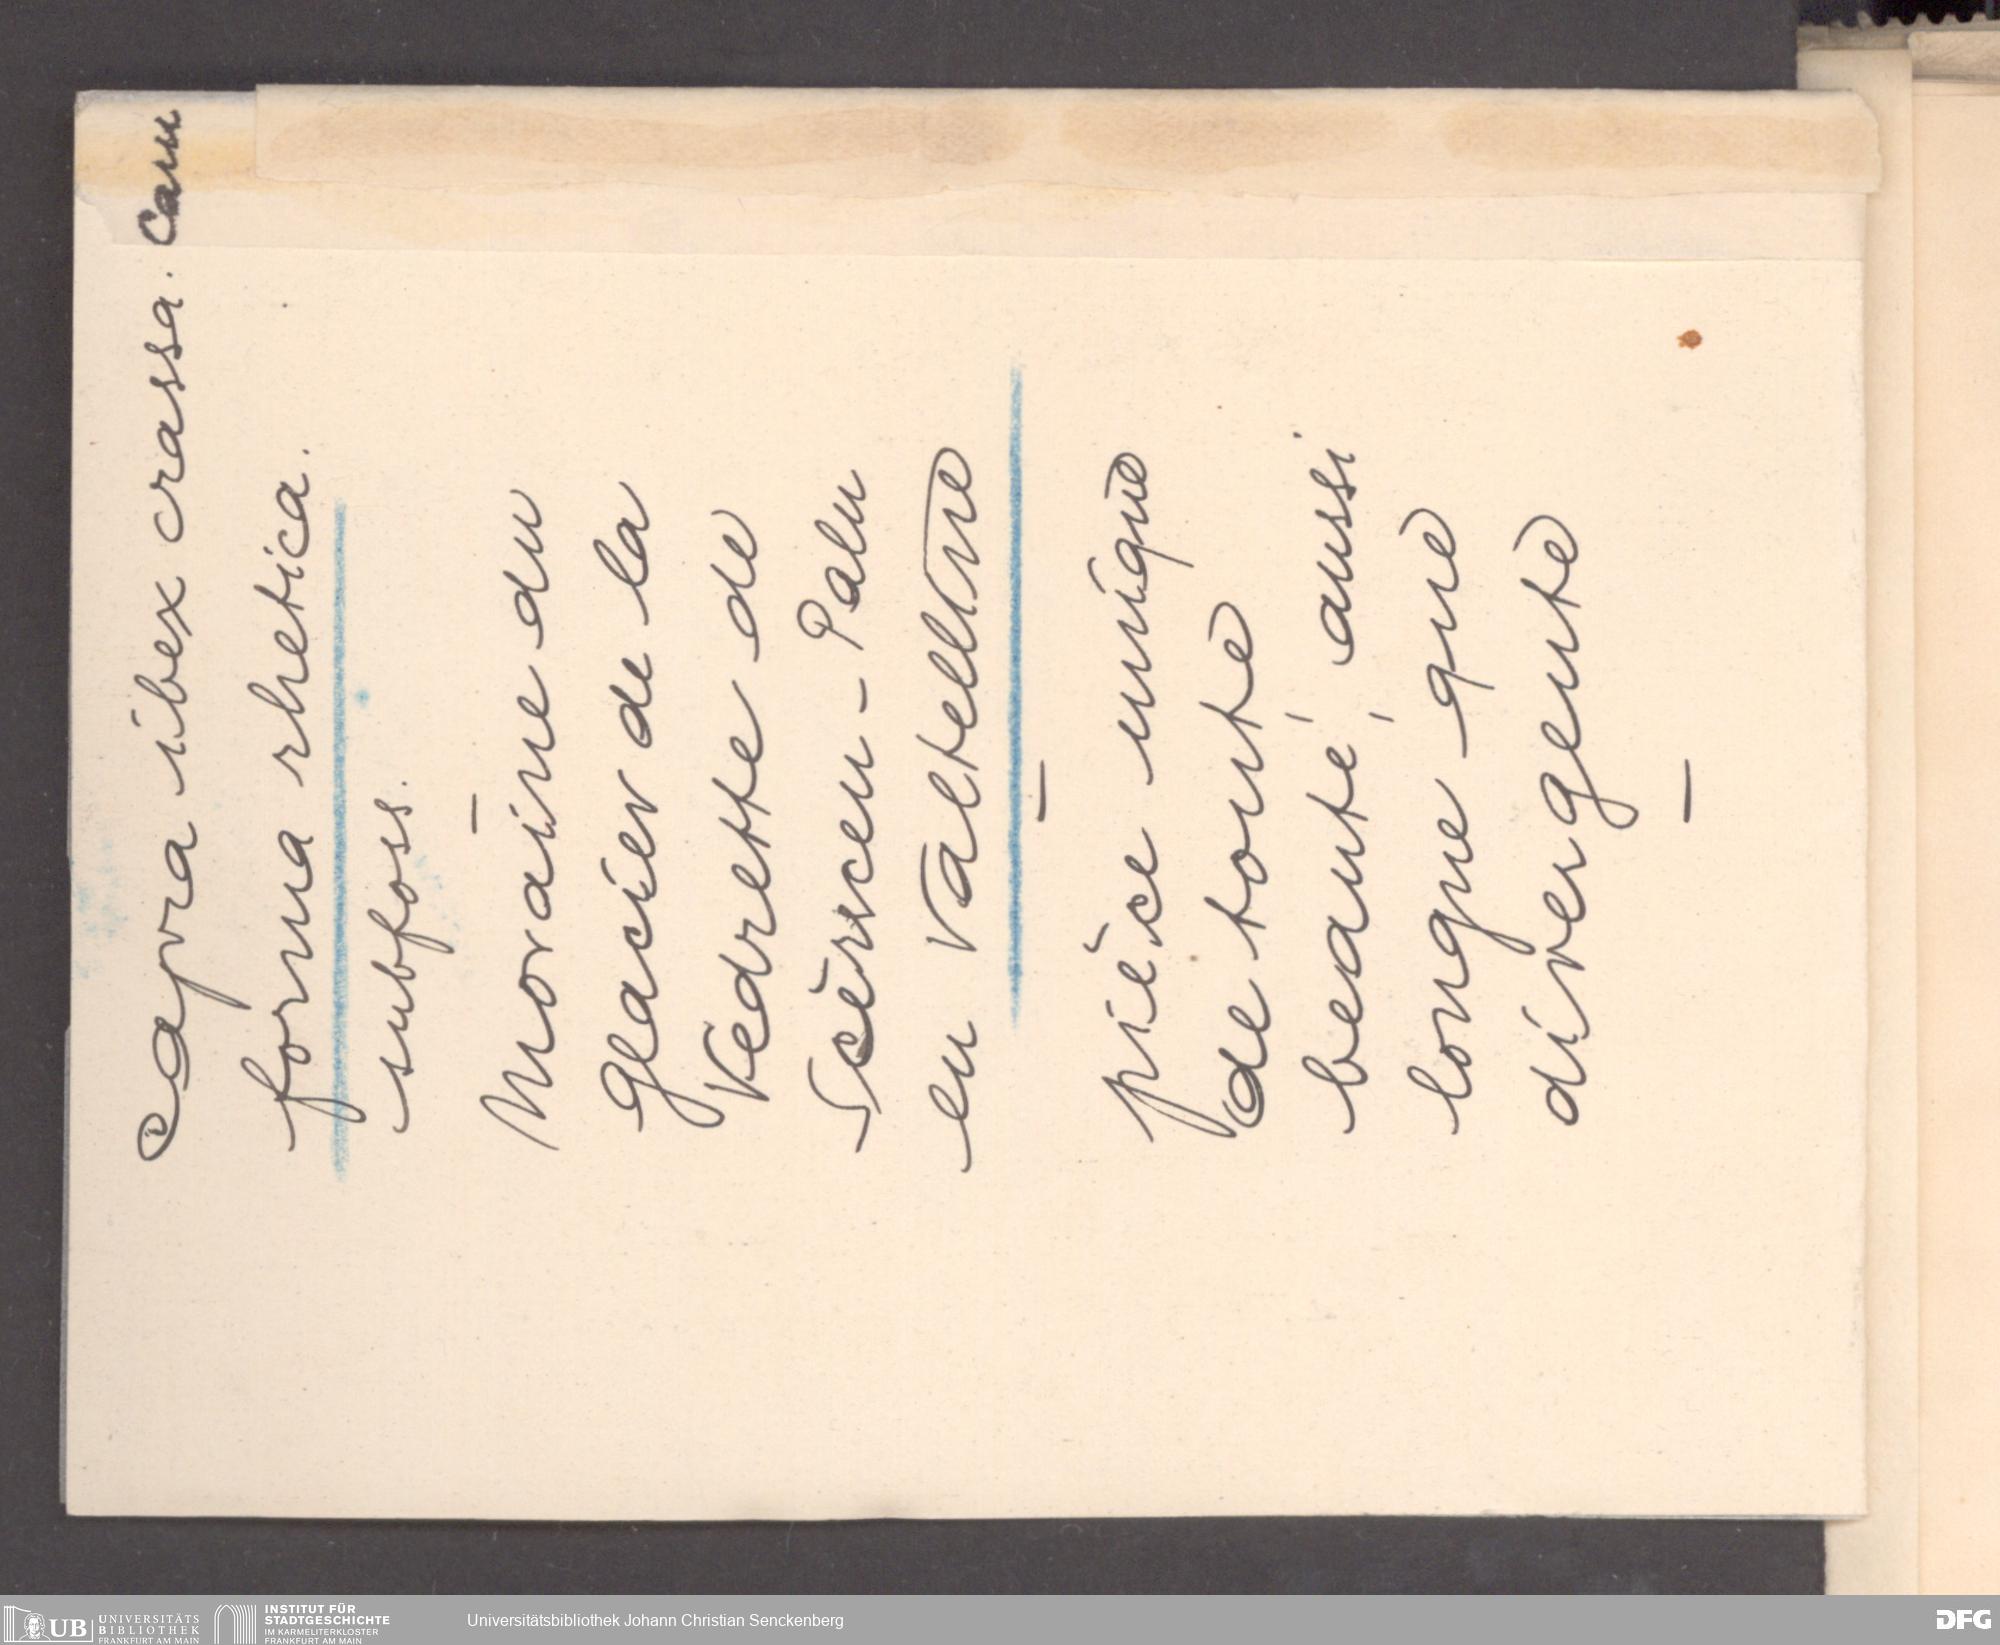 Capra ibex crassa. Cam
forma rhetica.
subfoss.
—
Moraine du
glacier de la
Vedrette de
Scerscen - Palu
en Valtelline
—
pièce unique
de toute
beauté, aussi
longue que
divergente
—
UB UNIVERSITÄTS
BIBLIOTHEK
FRANKFURT AM MAIN
INSTITUT FÜR
STADTGESCHICHTE
IM KARMELITERKLOSTER
FRANKFURT AM MAIN
Universitätsbibliothek Johann Christian Senckenberg
DFG